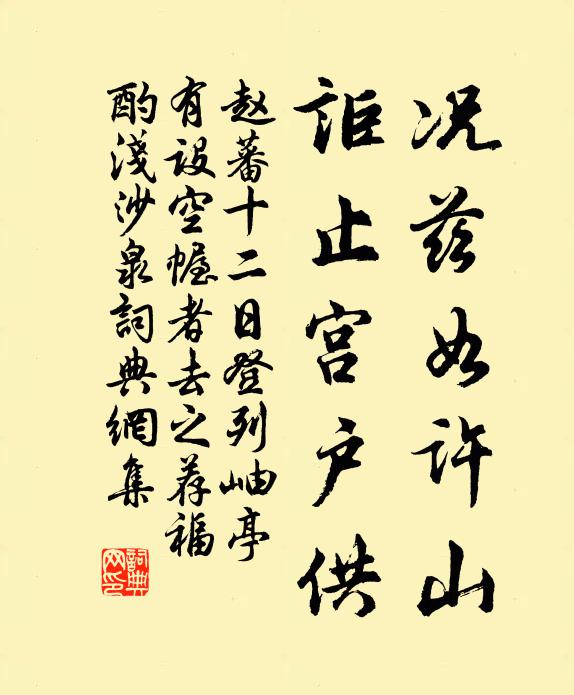 况茲如许山
詎止宫户供
赵蕃十二日登列岫亭
有设空幄者去之荐福
酌淺沙泉詞典網集
詞典
网印